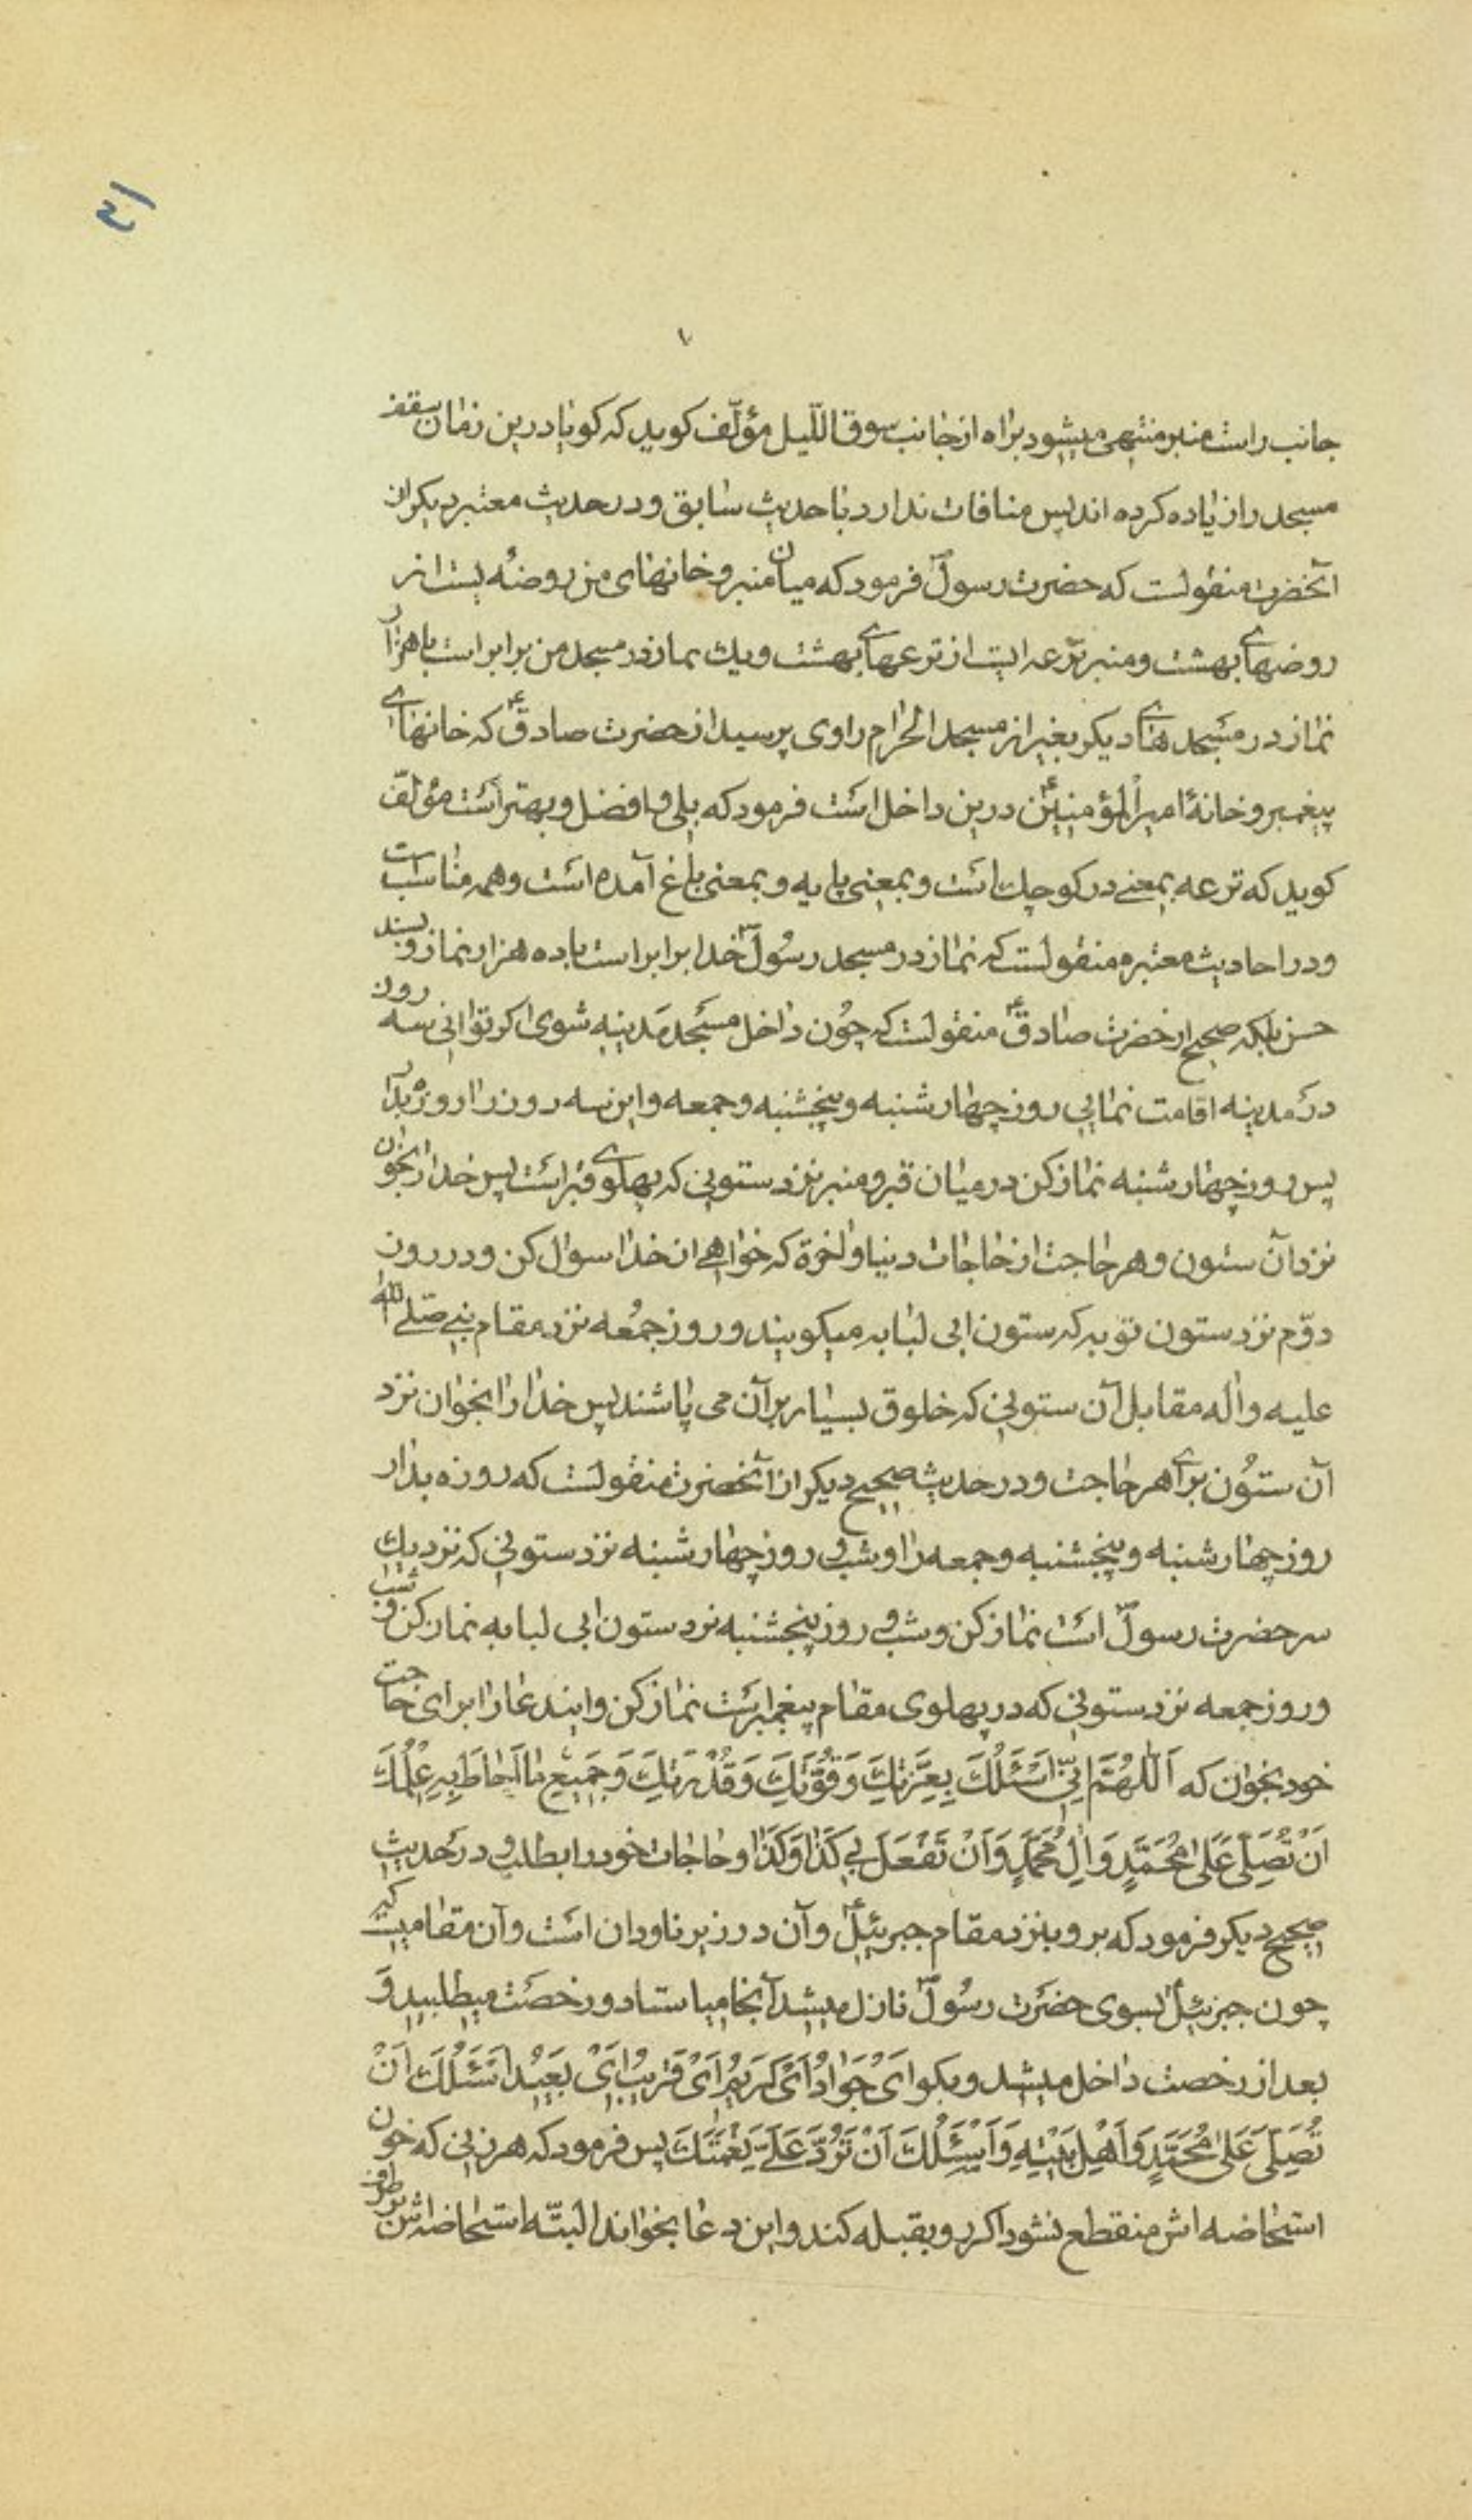 جانب راست منبر منتهی میشود براه از جانب سوق اللّیل مؤلّف کوید که کویا درین زمان سقف
مسجد را زیاده کرده اند پس منافات ندارد با حدیث سابق و در حدیث معتبر دیکر از
آنحضرت منقولست که حضرت رسولؐ فرمود که میان منبر و خانهای من روضهٔ یست از
روضهای بهشت و منبر ترعه ایست از ترعهای بهشت و یک نماز در مسجد من برابر است با هزار
نماز در مسجد های دیکر بغیر از مسجد الحرام راوی پرسید از حضرت صادقؑ که خانهای
پیغمبر و خانهٔ امیر المؤمنینؑ درین داخل است فرمود که بلی و افضل و بهتر است مؤلّف
کوید که ترعه بمعنی در کوچک است و بمعنی پایه و بمعنی باغ آمده است و همه مناسب است
و در احادیث معتبره منقولست که نماز در مسجد رسولؐ خدا برابر است با ده هزار نماز و بسند
حسن بلکه صحیح از حضرت صادقؑ منقولست که چون داخل مسجد مدینه شوی اکر توانی سه روز
در مدینه اقامت نمایی روز چهارشنبه و پنجشنبه و جمعه و این سه روز را روزه بدار
پس روز چهارشنبه نماز کن در میان قبر و منبر نزد ستونی که پهلوی قبر است پس خدا را بخوان
نزد آن ستون و هر حاجت از حاجات دنیا و اخرة که خواهی از خدا سوال کن و در روز
دوّم نزد ستون توبه که ستون ابی لبابه میکویند و روز جمُعه نزد مقام نبی صلّی الله
علیه واله مقابل آن ستونی که خلوق بسیار بر آن می پاشند پس خدا را بخوان نزد
آن ستون برای هر حاجت و در حدیث صحیح دیکر از آنحضرت منقولست که روزه بدار
روز چهارشنبه و پنجشنبه و جمعه را و شب و روز چهارشنبه نزد ستونی که نزدیک
سر حضرت رسولؐ است نماز کن و شب و روز پنجشنبه نزد ستون ابی لبابه نماز کن و شب
و روز جمعه نزد ستونی که در پهلوی مقام پیغمبر است نماز کن و ایندعا را برای حاجت
خود بخوان که اَللّٰهُمَّ اِنّی اَسْئَلُکَ بِعِزَّتِکَ وَقُوَّتِکَ وَقُدْرَتِکَ وَجَمیعِ مٰا اَحٰاطَ بِهِ عِلْمُکَ
اَنْ تُصَلِّیَ عَلیٰ مُحَمَّدٍ وَاٰلِ مُحَمَّدٍ وَاَنْ تَفْعَلَ بی کَذٰا وَکَذٰا و حاجات خود را بطلب و در حدیث
صحیح دیکر فرمود که برو بنزد مقام جبرئیلؑ و آن در زیر ناودان است و آن مقامیست که
چون جبرئیلؑ بسوی حضرت رسولؐ نازل میشد آنجا میاستاد و رخصت میطلبید و
بعد از رخصت داخل میشد و بکو اَیْ جَوٰادُ اَیْ کَریمُ اَیْ قَریبُ اَیْ بَعیدُ اَسْئَلُکَ اَنْ
تُصَلِّیَ عَلیٰ مُحَمَّدٍ وَاَهْلِ بَیْتِهِ وَاَسْئَلُکَ اَنْ تَرُدَّ عَلَیَّ نِعْمَتَکَ پس فرمود که هر زنی که خون
استحاضه اش منقطع نشود اکر رو بقبله کند و این دعا بخواند البتّه استحاضه اش بر طرف